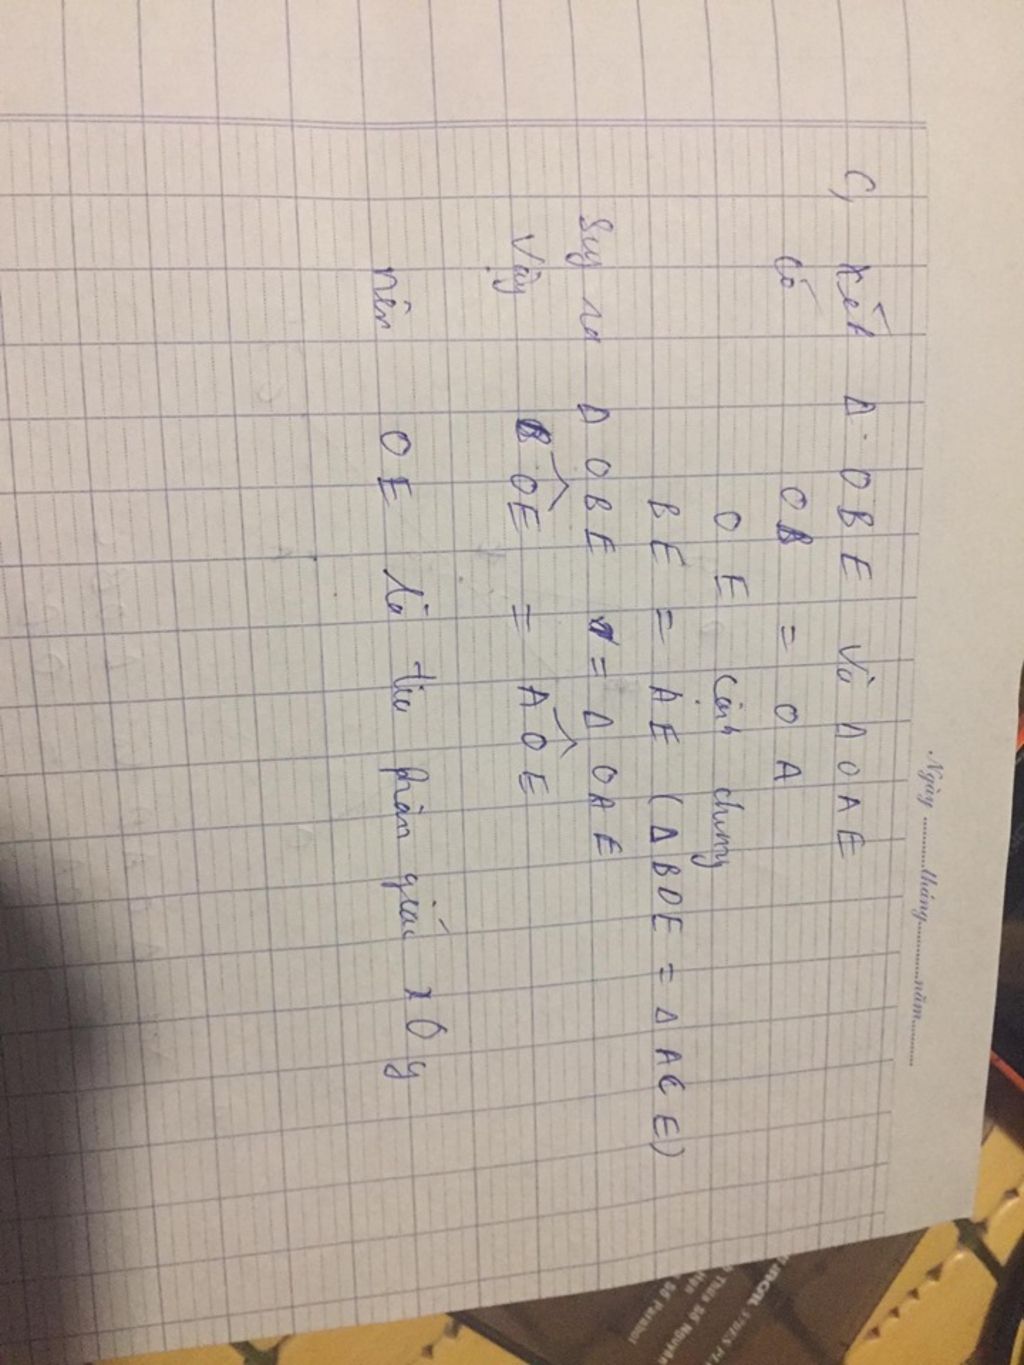 Ngày ............tháng............năm............
c, Xét Δ OBE và Δ OAE
có OB = OA
OE cạnh chung
BE = AE (Δ BDE = Δ ACE)
Suy ra Δ OBE = Δ OAE
Vậy BOE = AOE
nên OE là tia phân giác xOy